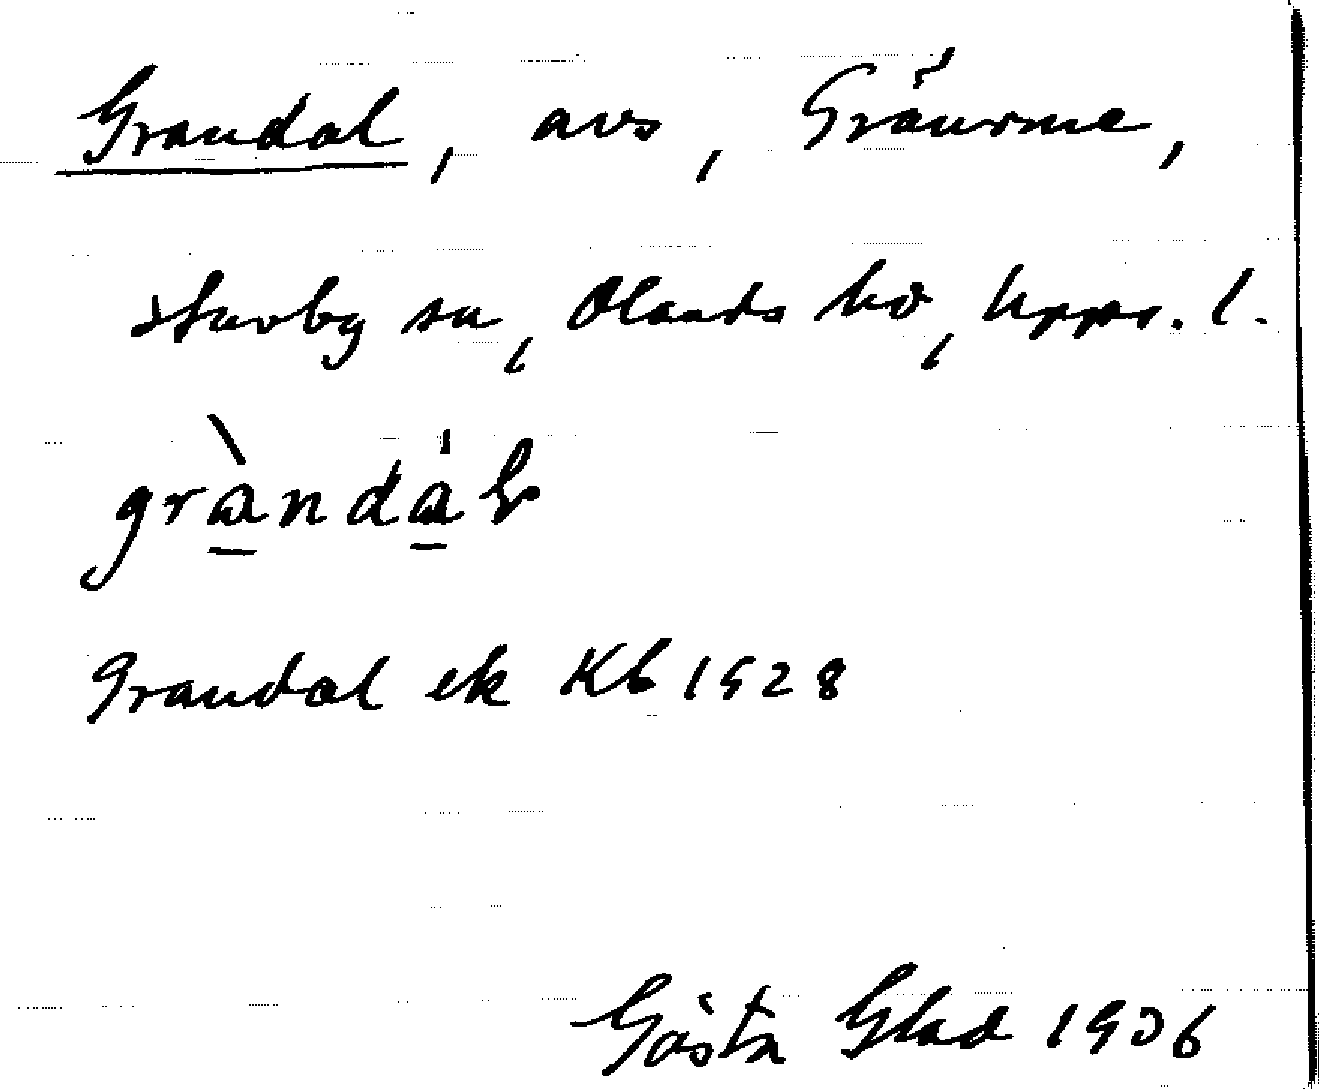 Grandal, avs, Gränome,
Stavby sn, Olands hd, Upps. l.
gràndá̀l
Grandal ek Kb 1928
Gösta Glad 1936